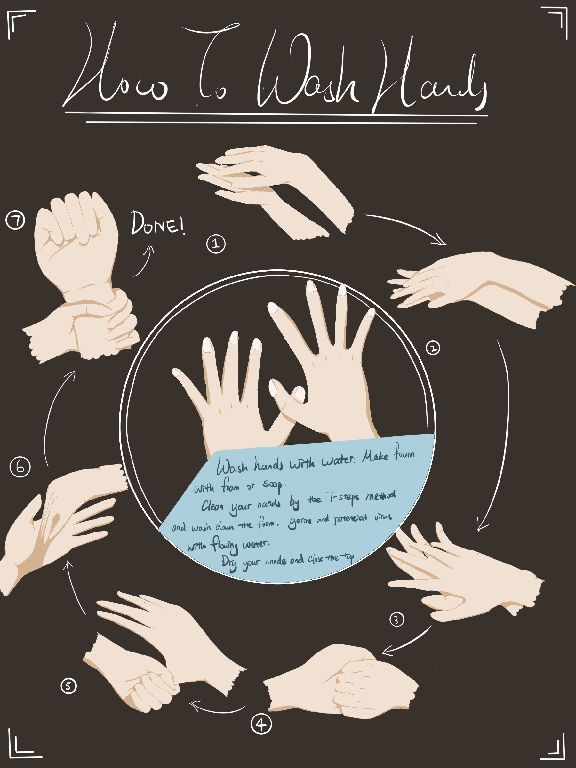 How To Wash Hands
①
②
③
④
⑤
⑥
⑦
DONE!
Wash hands with water. Make foam
with foam or soap.
Clean your hands by the 7-steps method
and wash down the foam, germs and potential virus
with flowing water.
Dry your hands and close the tap